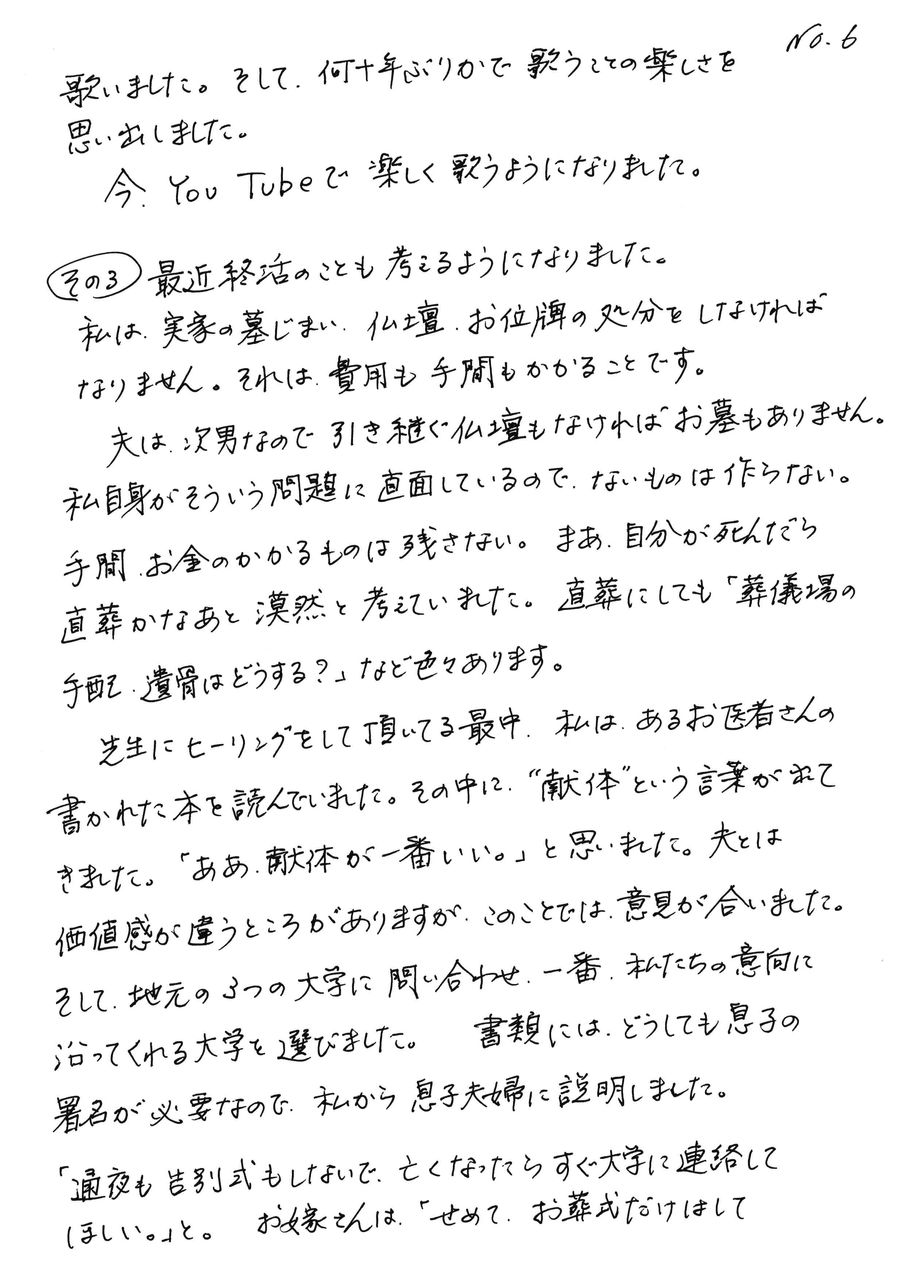 No.6
歌いました。そして、何十年ぶりかで歌うことの楽しさを
思い出しました。
今、YouTubeで楽しく歌うようになりました。
その3 最近終活のことも考えるようになりました。
私は、実家の墓じまい、仏壇、お位牌の処分をしなければ
なりません。それは、費用も手間もかかることです。
夫は、次男なので引き継ぐ仏壇もなければお墓もありません。
私自身がそういう問題に直面しているので、ないものは作らない。
手間、お金のかかるものは残さない。まあ、自分が死んだら
直葬かなあと漠然と考えていました。直葬にしても「葬儀場の
手配、遺骨はどうする?」など色々あります。
先生にヒーリングをして頂いてる最中、私は、あるお医者さんの
書かれた本を読んでいました。その中に、“献体”という言葉が出て
きました。「ああ、献体が一番いい。」と思いました。夫とは
価値感が違うところがありますが、このことでは、意見が合いました。
そして、地元の3つの大学に問い合わせ、一番、私たちの意向に
沿ってくれる大学を選びました。 書類には、どうしても息子の
署名が必要なので、私から息子夫婦に説明しました。
「通夜も告別式もしないで、亡くなったらすぐ大学に連絡して
ほしい。」と。 お嫁さんは、「せめて、お葬式だけはして